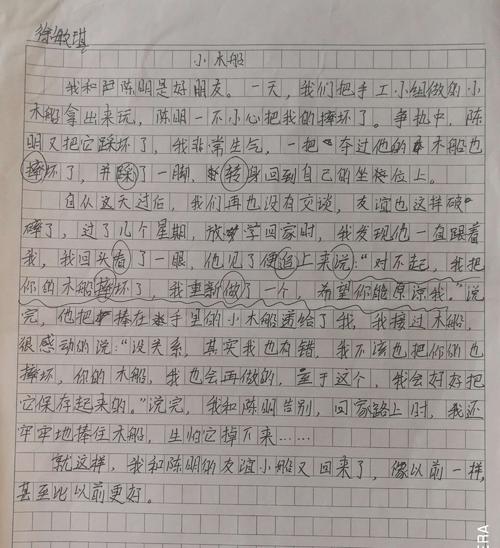 徐敏琪
小木船
我和陈明是好朋友。一天，我们把手工小组做的小
木船拿出来玩，陈明一不小心把我的摔坏了。争执中，陈
明又把它踩坏了，我非常生气，一把夺过他的木船也
摔坏了，并踩了一脚，转身回到自己的坐位上。
自从这天过后，我们再也没有交谈，友谊也这样破
碎了，过了几个星期，放学回家时，我发现他一直跟着
我，我回头看了一眼，他见了便追上来说：“对不起，我把
你的木船摔坏了，我重新做了一个，希望你能原谅我。”说
完，他把捧在手里的小木船递给了我，我接过木船，
很感动的说：“没关系，其实我也有错，我不该也把你的也
摔坏，你的木船，我也会再做的，至于这个，我会好好把
它保存起来的。”说完，我和陈明告别，回家路上时，我还
牢牢地捧住木船，生怕它掉下来……
就这样，我和陈明的友谊小船又回来了，像以前一样，
甚至比以前更好。
ERA